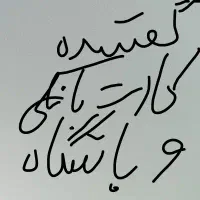 گمشده
کارت بانکی
و باشگاه